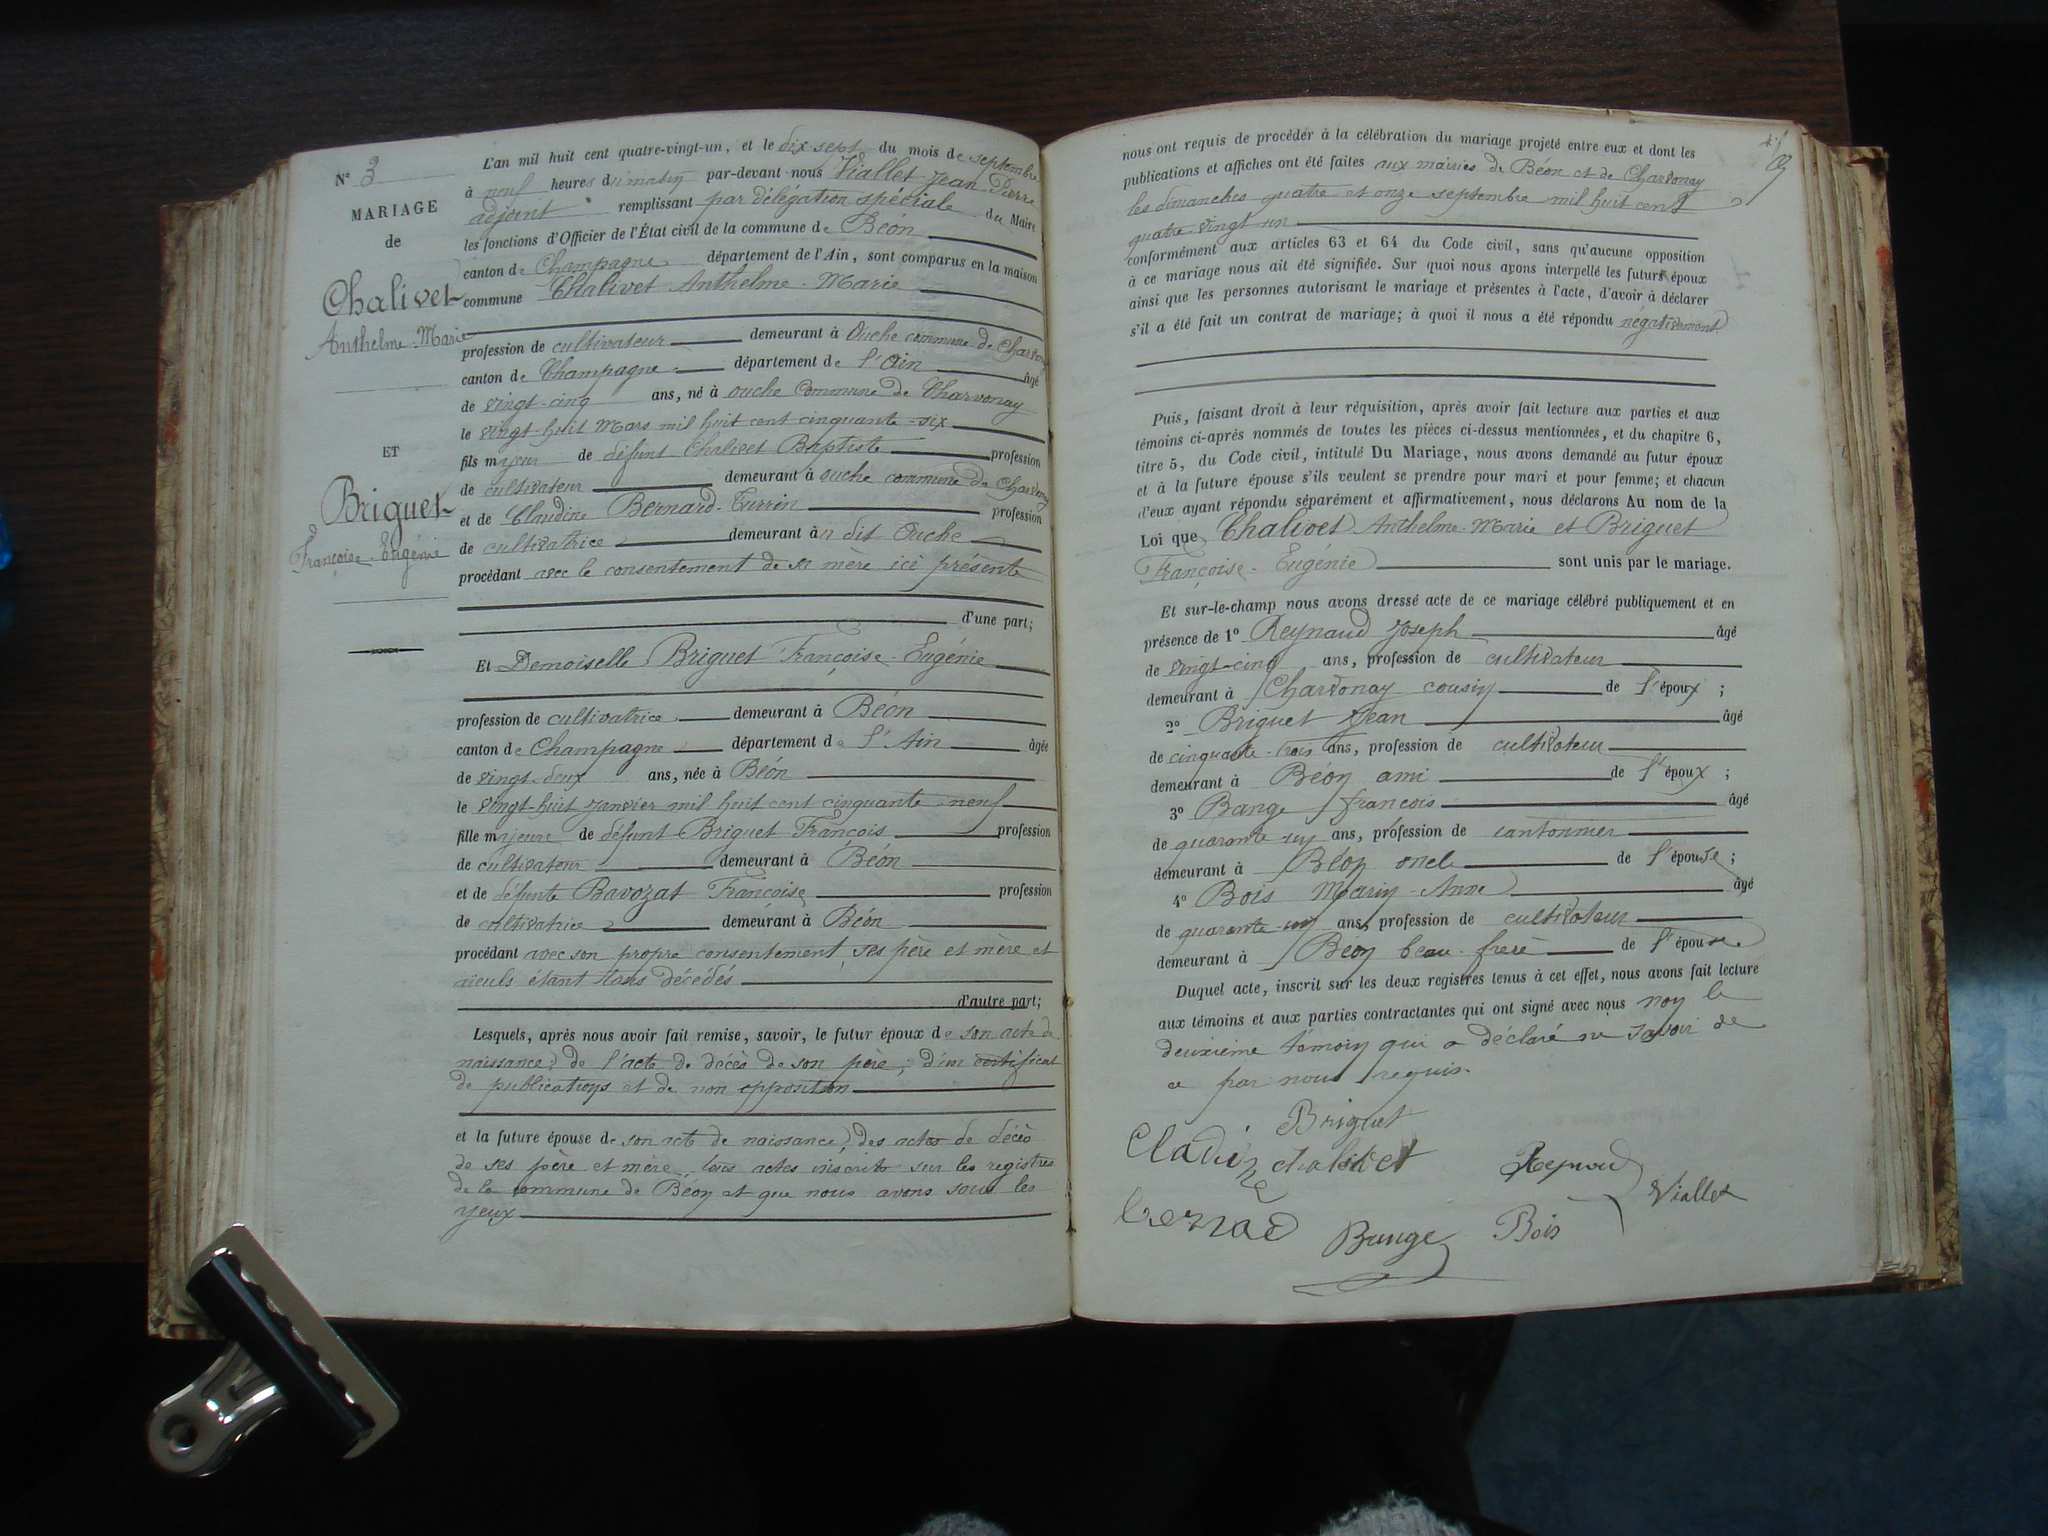 N° 3
MARIAGE
de
Chalivet
Anthelme-Marie
ET
Briguet
Françoise-Eugénie
L'an mil huit cent quatre-vingt-un, et le dix sept du mois de septembre
à neuf heures du matin par-devant-nous Viallet Jean-Pierre
adjoint remplissant par délégation spéciale du Maire
les fonctions d'Officier de l'État civil de la commune de Béon
canton de Champagne département de l'Ain, sont comparus en la maison
commune Chalivet Anthelme-Marie
profession de cultivateur demeurant à Ouche commune de Charvonay
canton de Champagne département de l'Ain âgé
de vingt-cinq ans, né à ouche Commune de Charvonay
le vingt-huit Mars mil huit cent cinquante-six
fils majeur de défunt Chalivet Baptiste profession
de cultivateur demeurant à ouche commune de Charvonay
et de Claudine Bernard-Turrin profession
de cultivatrice demeurant à dit Ouche
procédant avec le consentement de sa mère ici présente
d'une part;
Et Demoiselle Briguet Françoise-Eugénie
profession de cultivatrice demeurant à Béon
canton de Champagne département de l'Ain âgée
de vingt-deux ans, née à Béon
le vingt-huit janvier mil huit cent cinquante-neuf
fille majeure de défunt Briguet François profession
de cultivateur demeurant à Béon
et de défunte Bavozat Françoise profession
de cultivatrice demeurant à Béon
procédant avec son propre consentement, ses père et mère et
aïeuls étant tous décédés
d'autre part;
Lesquels, après nous avoir fait remise, savoir, le futur époux de son acte de
naissance, de l'acte de décès de son père, d'un certificat
de publications et de non opposition
et la future épouse de son acte de naissance, des actes de décès
de ses père et mère, tous actes inscrits sur les registres
de la commune de Béon et que nous avons sous les
yeux
nous ont requis de procéder à la célébration du mariage projeté entre eux et dont les
publications et affiches ont été faites aux mairies de Béon et de Charvonay
les dimanches quatre et onze septembre mil huit cent
quatre vingt un
conformément aux articles 63 et 64 du Code civil, sans qu'aucune opposition
à ce mariage nous ait été signifiée. Sur quoi nous avons interpellé les futurs époux
ainsi que les personnes autorisant le mariage et présentes à l'acte, d'avoir à déclarer
s'il a été fait un contrat de mariage; à quoi il nous a été répondu négativement
Puis, faisant droit à leur réquisition, après avoir fait lecture aux parties et aux
témoins ci-après nommés de toutes les pièces ci-dessus mentionnées, et du chapitre 6,
titre 5, du Code civil, intitulé Du Mariage, nous avons demandé au futur époux
et à la future épouse s'ils veulent se prendre pour mari et pour femme; et chacun
d'eux ayant répondu séparément et affirmativement, nous déclarons Au nom de la
Loi que Chalivet Anthelme-Marie et Briguet
Françoise-Eugénie sont unis par le mariage.
Et sur-le-champ nous avons dressé acte de ce mariage célébré publiquement et en
présence de 1° Reynaud Joseph âgé
de vingt-cinq ans, profession de cultivateur
demeurant à Charvonay cousin de l'époux;
2° Briguet Jean âgé
de cinquante-trois ans, profession de cultivateur
demeurant à Béon ami de l'époux;
3° Bange françois âgé
de quarante un ans, profession de cantonnier
demeurant à Béon oncle de l'épouse;
4° Bois Marin-Anne âgé
de quarante-un ans, profession de cultivateur
demeurant à Béon beau-frère de l'épouse
Duquel acte, inscrit sur les deux registres tenus à cet effet, nous avons fait lecture
aux témoins et aux parties contractantes qui ont signé avec nous non le
deuxième témoin qui a déclaré ne savoir de
ce par nous requis.
Briguet
Cladine chalivet Reynaud
Viallet
bernad Bange Bois